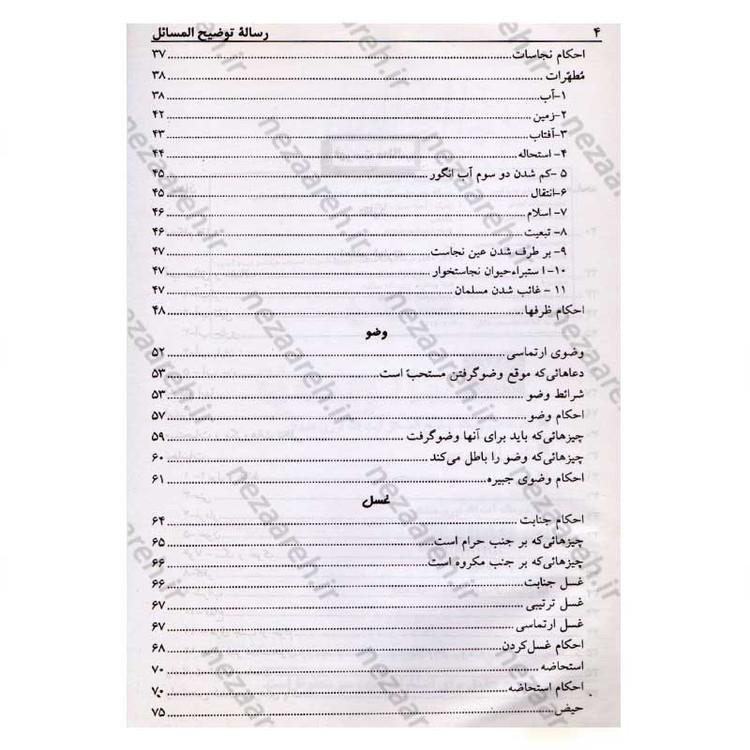 ۴ رسالهٔ توضیح المسائل
احکام نجاسات ۳۷
مُطهّرات ۳۸
۱-آب ۳۸
۲-زمین ۴۲
۳-آفتاب ۴۳
۴- استحاله ۴۴
۵ -کم شدن دو سوم آب انگور ۴۵
۶-انتقال ۴۵
۷- اسلام ۴۶
۸- تبعیت ۴۶
۹- بر طرف شدن عین نجاست ۴۷
۱۰-استبراءحیوان نجاستخوار ۴۷
۱۱ - غائب شدن مسلمان ۴۷
احکام ظرفها ۴۸
وضو
وضوی ارتماسی ۵۲
دعاهائی‌که موقع وضوگرفتن مستحبّ است ۵۳
شرائط وضو ۵۳
احکام وضو ۵۷
چیزهائی‌که باید برای آنها وضوگرفت ۵۹
چیزهائی‌که وضو را باطل می‌کند ۶۰
احکام وضوی جبیره ۶۱
غسل
احکام جنابت ۶۴
چیزهائی‌که بر جنب حرام است ۶۵
چیزهائی‌که بر جنب مکروه است ۶۶
غسل جنابت ۶۶
غسل ترتیبی ۶۷
غسل ارتماسی ۶۷
احکام غسل‌کردن ۶۸
استحاضه ۷۰
احکام استحاضه ۷۰
حیض ۷۵
nezaareh.ir